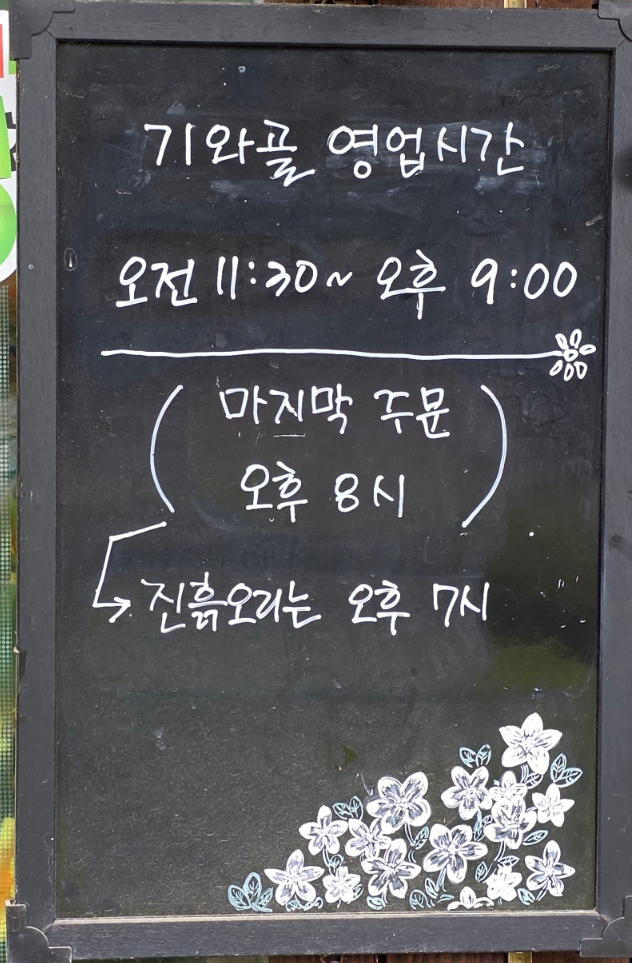 기와골 영업시간
오전 11:30~ 오후 9:00
( 마지막 주문
오후 8시 )
→ 진흙오리는 오후 7시